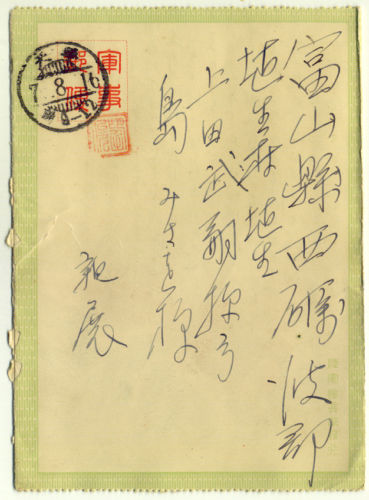 富山縣西礪波郡
埴生村埴生
上田武 様方
島 みさを様
親展
軍事
郵便
7.8.16